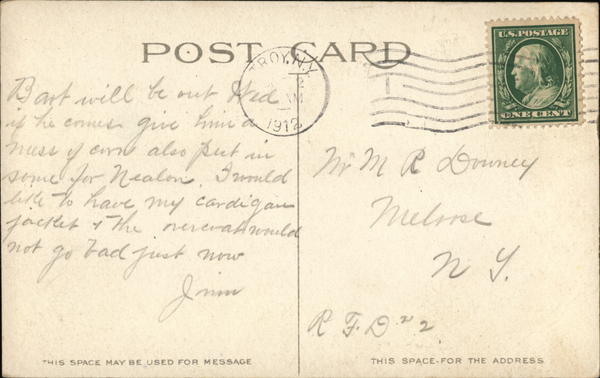 POST CARD
TROY, N.Y.
1912
U.S. POSTAGE
ONE CENT
Bart will be out Wed
if he comes give him a
mess of corn also put in
some for Nealon. I would
like to have my cardigan
jacket & the overcoat would
not go bad just now
Jim
Mr M R Downey
Melrose
N Y.
R F D 22
THIS SPACE MAY BE USED FOR MESSAGE
THIS SPACE FOR THE ADDRESS